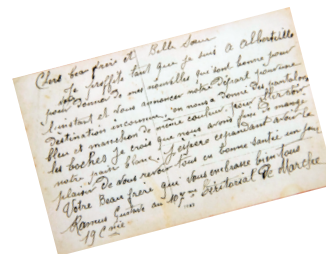 Chers beau frère et Belle Sœur
Je profite tant que je suis a Albertville
pour vous donner de mes nouvelles qui sont bonne pour
l'instant et vous annoncer notre Départ pour une
destination inconnue on nous a donné des pantalons
bleu et manchon de même couleur pour
les boches je crois que nous avons fini de manger
notre pain blanc j'espère cependant avoir le
plaisir de vous revoir tous en bonne santé un jour
Votre Beau frère qui vous embrasse bien tous
Ramus Gustave au 107ème Téritorial de Marche
19 Cnie